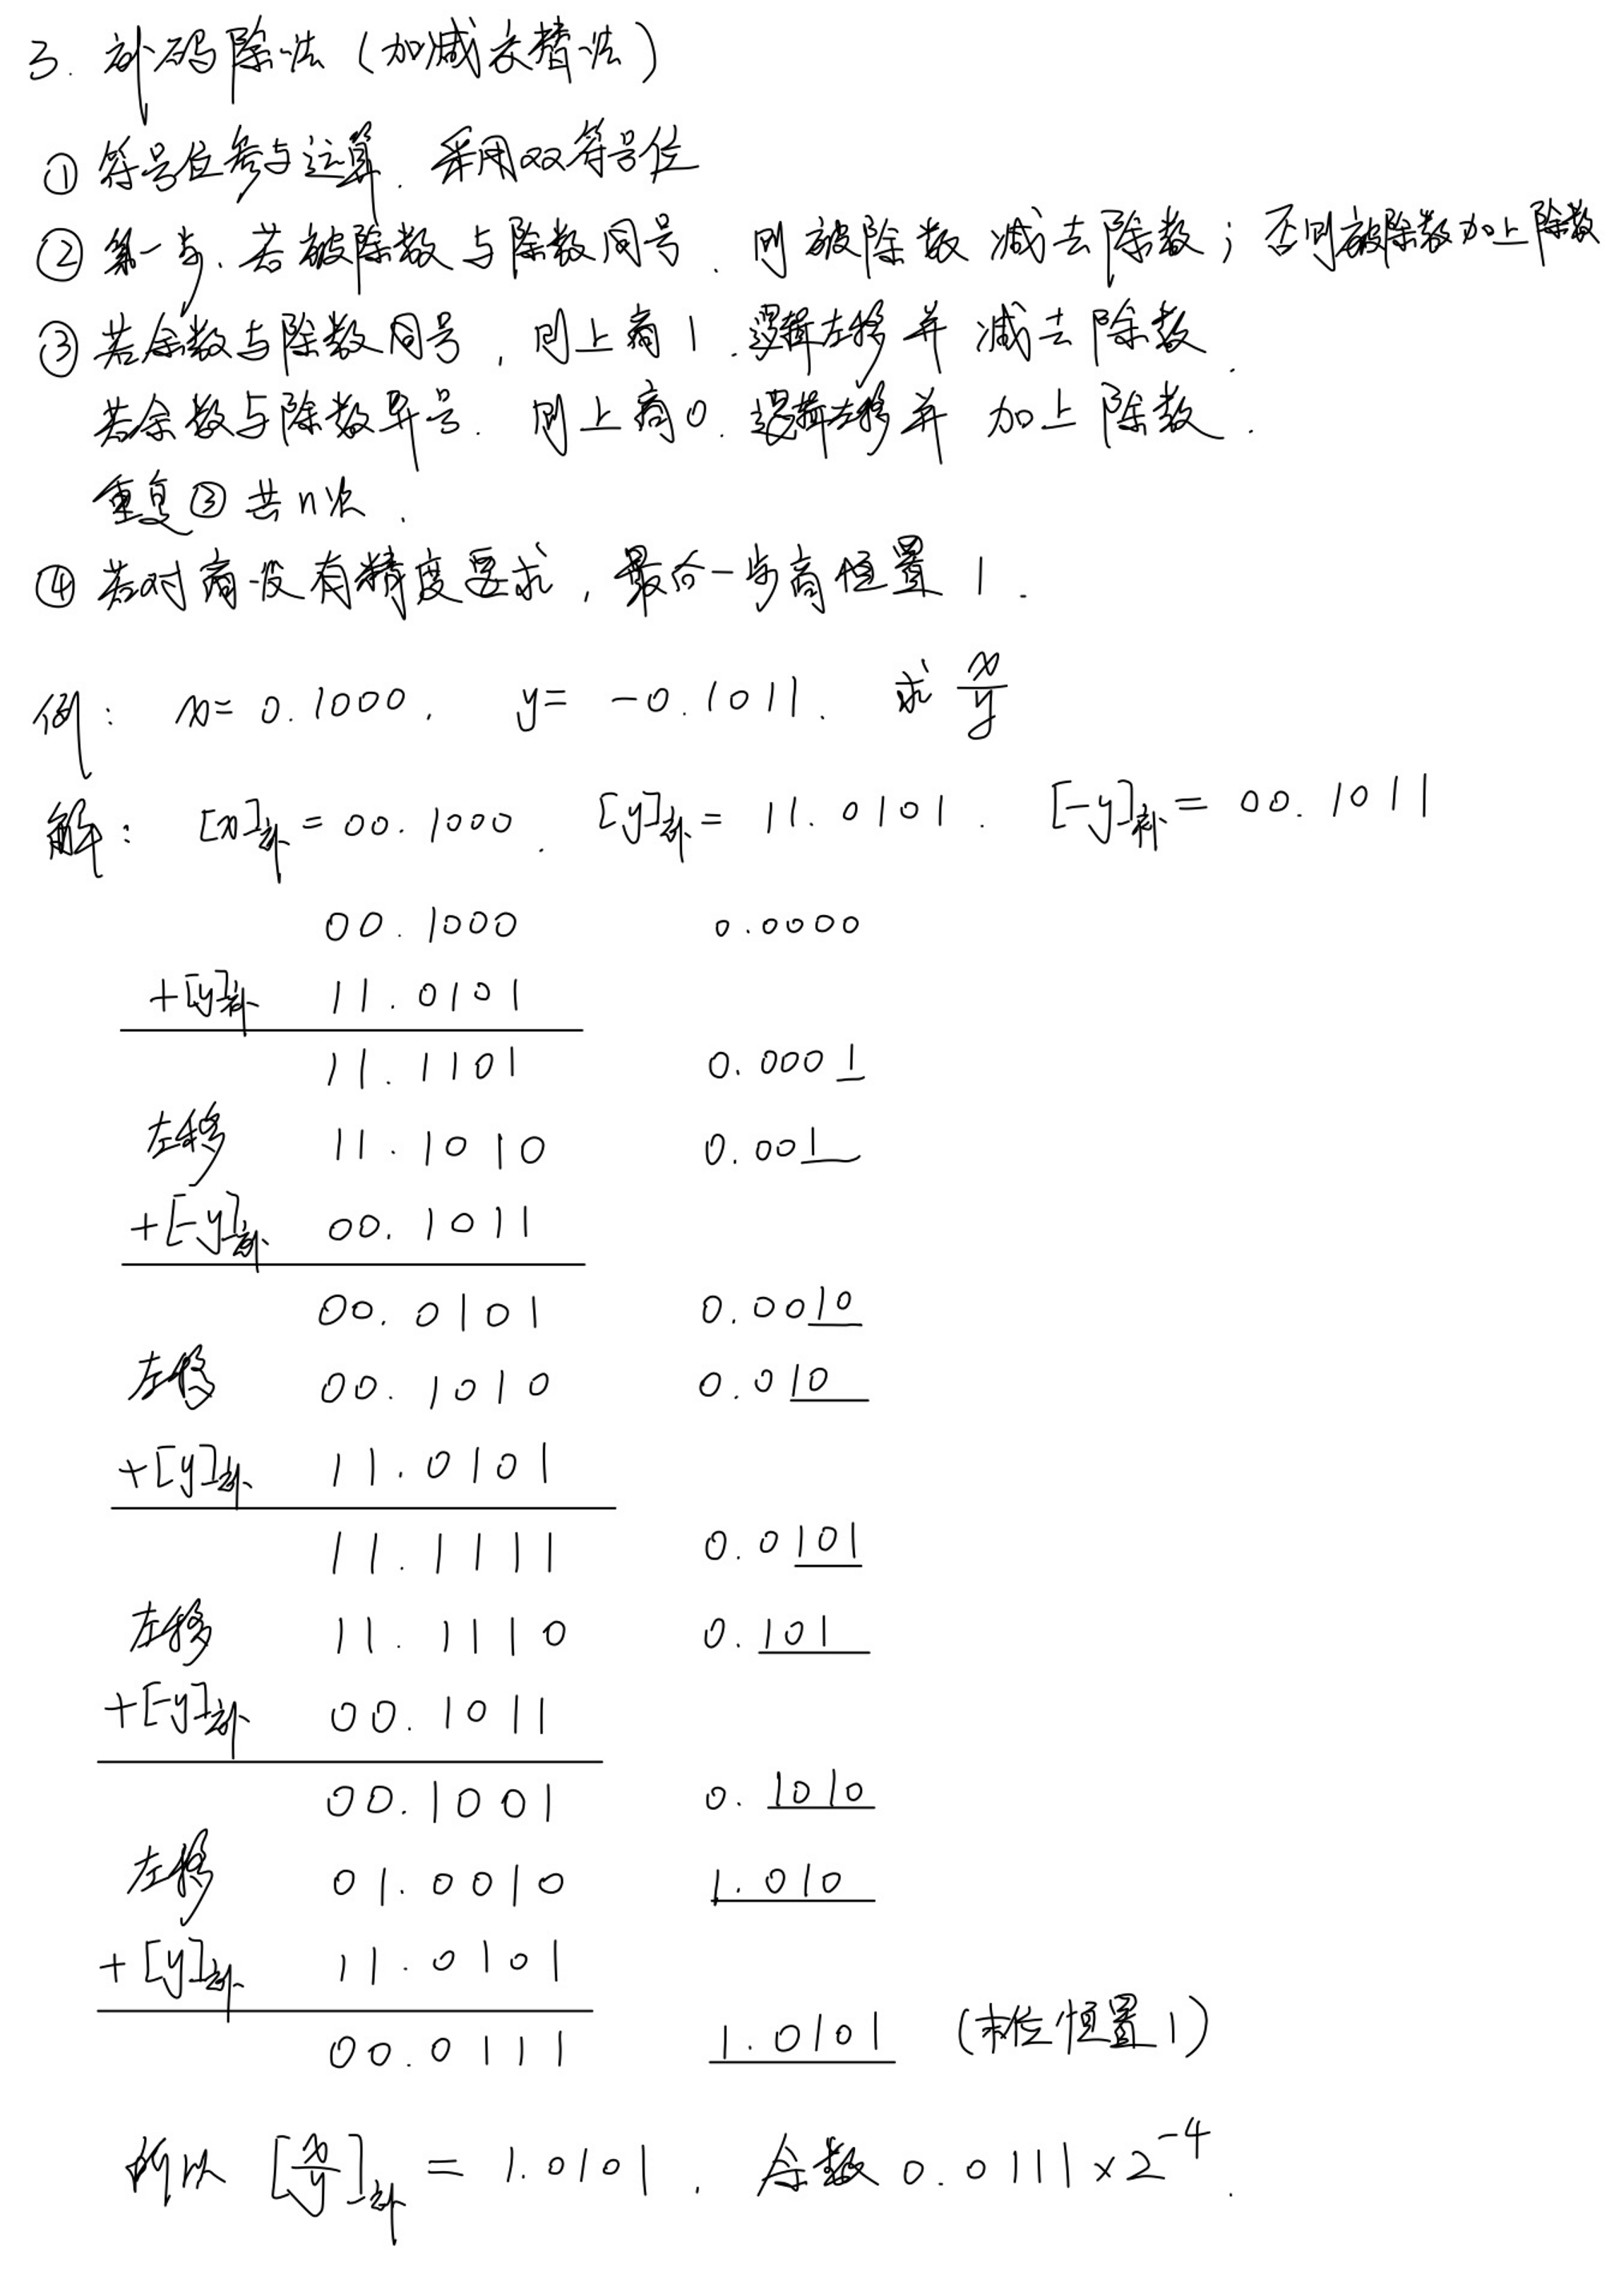 3. 补码除法(加减交替法)
① 符号位参与运算. 采用双符号位
② 第一步. 若被除数与除数同号. 则被除数减去除数; 否则被除数加上除数
③ 若余数与除数同号, 则上商1. 逻辑左移并减去除数.
若余数与除数异号. 则上商0. 逻辑左移并加上除数.
重复③共n次.
④ 若对商没有精度要求, 最后一步商恒置1.
例: x= 0.1000. y= -0.1011. 求 x/y
解: [x]补= 00.1000. [y]补= 11.0101. [-y]补= 00.1011
00.1000 0.0000
+[y]补 11.0101
11.1101 0.0001
左移 11.1010 0.001
+[-y]补 00.1011
00.0101 0.0010
左移 00.1010 0.010
+[y]补 11.0101
11.1111 0.0101
左移 11.1110 0.101
+[-y]补 00.1011
00.1001 0.1010
左移 01.0010 1.010
+[y]补 11.0101
00.0111 1.0101 (末位恒置1)
所以 [x/y]补 = 1.0101, 余数 0.0111×2^-4.